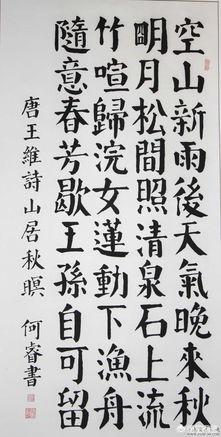 空山新雨後天氣晚來秋
明月松間照清泉石上流
竹喧歸浣女蓮動下漁舟
隨意春芳歇王孫自可留
唐王維詩山居秋暝 何睿書